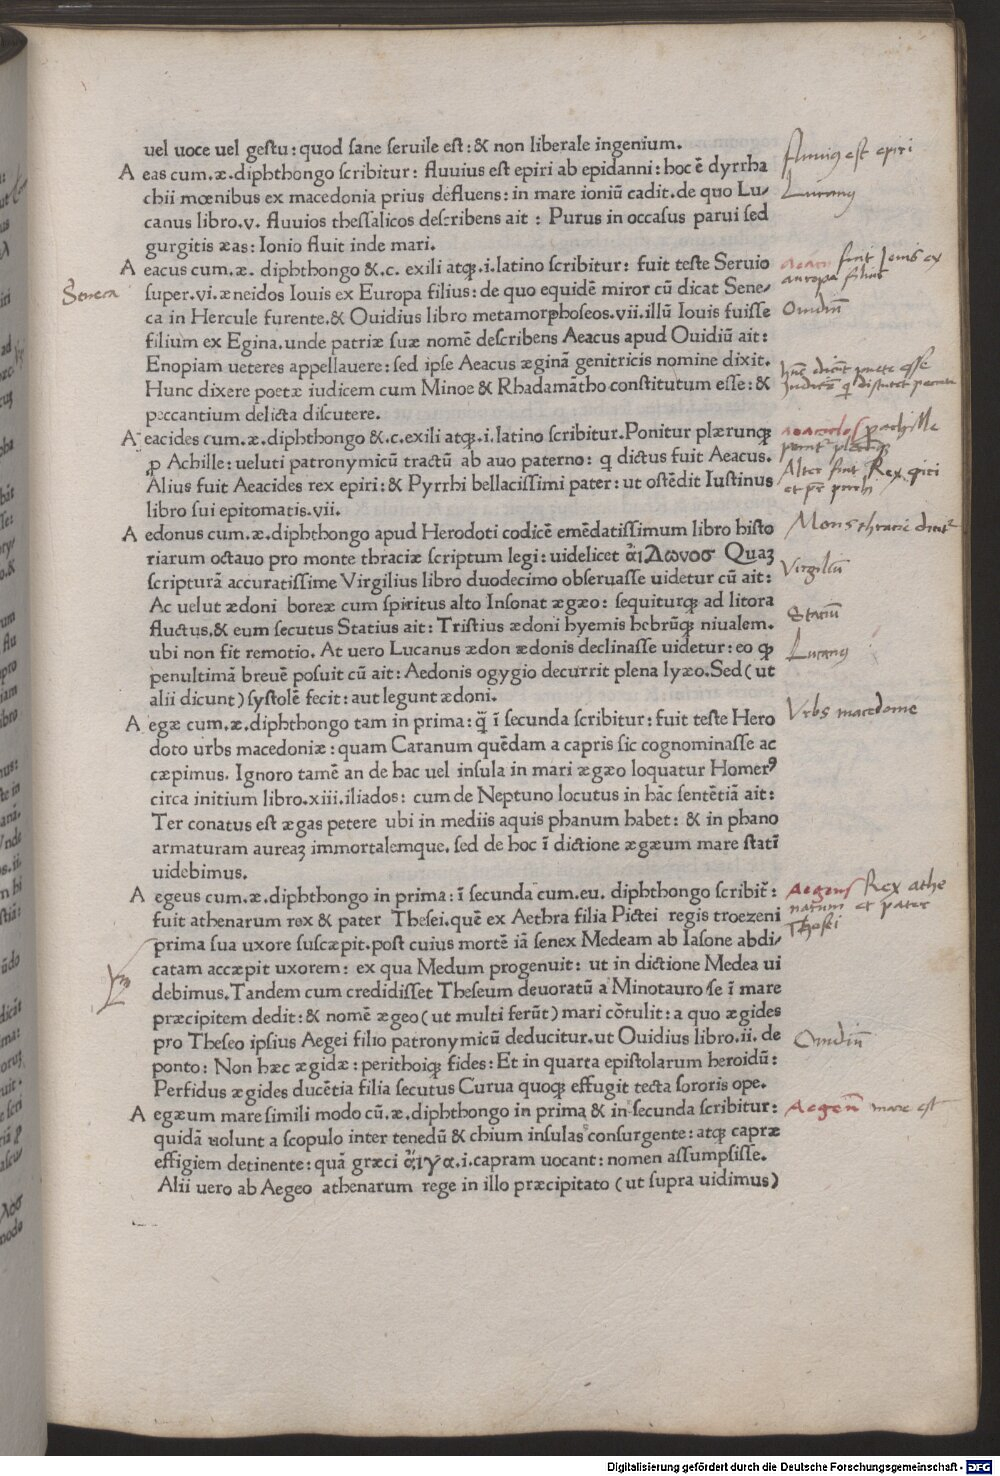 uel uoce uel gestu: quod sane seruile est: & non liberale ingenium.
A eas cum.æ.diphthongo scribitur: fluuius est epiri ab epidanni: hoc ē dyrrha
chii mœnibus ex macedonia prius defluens: in mare ioniū cadit. de quo Lu/
canus libro.v. fluuios thessalicos describens ait : Purus in occasus parui sed
gurgitis æas: Ionio fluit inde mari.
A eacus cum.æ. diphthongo &.c. exili atq;.i.latino scribitur: fuit teste Seruio
super.vi.æneidos Iouis ex Europa filius: de quo equidē miror cū dicat Sene/
ca in Hercule furente.& Ouidius libro metamorphoseos.vii.illū Iouis fuisse
filium ex Egina.unde patriæ suæ nomē describens Aeacus apud Ouidiū ait:
Enopiam ueteres appellauere: sed ipse Aeacus æginā genitricis nomine dixit.
Hunc dixere poetæ iudicem cum Minoe & Rhadamātho constitutum esse: &
peccantium delicta discutere.
A eacides cum.æ.diphthongo &.c.exili atq;.i.latino scribitur.Ponitur plærunq;
ꝓ Achille: ueluti patronymicū tractū ab auo paterno: q dictus fuit Aeacus.
Alius fuit Aeacides rex epiri: & Pyrrhi bellacissimi pater: ut ostēdit Iustinus
libro sui epitomatis.vii.
A edonus cum.æ.diphthongo apud Herodoti codicē emēdatissimum libro histo
riarum octauo pro monte thraciæ scriptum legi: uidelicet ἀιΔωνοσ Quaȝ
scripturā accuratissime Virgilius libro duodecimo obseruasse uidetur cū ait:
Ac uelut ædoni boreæ cum spiritus alto Insonat ægæo: sequiturq; ad litora
fluctus.& eum secutus Statius ait: Tristius ædoni hyemis hebrūq; niualem.
ubi non fit remotio. At uero Lucanus ædon ædonis declinasse uidetur: eo ꝙ
penultimā breuē posuit cū ait: Aedonis ogygio decurrit plena lyæo.Sed (ut
alii dicunt) systolē fecit: aut legunt ædoni.
A egæ cum.æ.diphthongo tam in prima: q̄ ī secunda scribitur: fuit teste Hero
doto urbs macedoniæ: quam Caranum quēdam a capris sic cognominasse ac
cæpimus. Ignoro tamē an de hac uel insula in mari ægæo loquatur Homerꝰ
circa initium libro.xiii.iliados: cum de Neptuno locutus in hāc sentētiā ait:
Ter conatus est ægas petere ubi in mediis aquis phanum habet: & in phano
armaturam aureaȝ immortalemque. sed de hoc ī dictione ægæum mare statī
uidebimus.
A egeus cum.æ.diphthongo in prima: ī secunda cum.eu. diphthongo scribit̄:
fuit athenarum rex & pater Thesei.quē ex Aethra filia Pictei regis troezeni
prima sua uxore suscæpit.post cuius mortē iā senex Medeam ab Iasone abdi/
catam accæpit uxorem: ex qua Medum progenuit: ut in dictione Medea ui
debimus.Tandem cum credidisset Theseum deuoratū a Minotauro se ī mare
præcipitem dedit: & nomē ægeo (ut multi ferūt) mari cōtulit: a quo ægides
pro Theseo ipsius Aegei filio patronymicū deducitur.ut Ouidius libro.ii. de
ponto: Non hæc ægidæ: perithoiq; fides: Et in quarta epistolarum heroidū:
Perfidus ægides ducētia fila secutus Curua quoq; effugit tecta sororis ope.
A egæum mare simili modo cū.æ.diphthongo in prima & in secunda scribitur:
quidā uolunt a scopulo inter tenedū & chium insulas consurgente: atq; capræ
effigiem detinente: quā græci ἀιγα.i.capram uocant: nomen assumpsisse.
Alii uero ab Aegeo athenarum rege in illo præcipitato (ut supra uidimus)
Seneca
fluuius est epiri
Lucanus
fuit Iouis ex
europa filius
Ouidiū
Rex epiri
Mons thracie
Virgiliū
Statiū
Lucanus
Vrbs macedonie
Aegeus Rex athe
narum et pater
Thesei
Ouidiū
Aegeū mare est
Digitalisierung gefördert durch die Deutsche Forschungsgemeinschaft - DFG